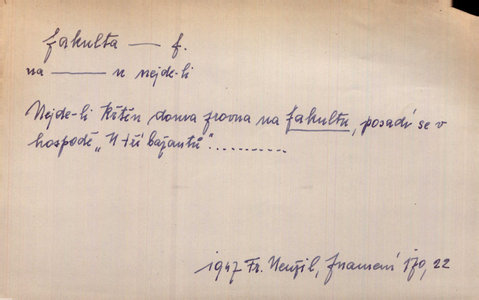 fakulta — f.
na ——— u nejde-li
Nejde-li Kštěn doma zrovna na fakultu, posadí se v
hospodě „U tří bažantů“..........
1947 Fr. Neužil, Znamení 170, 22